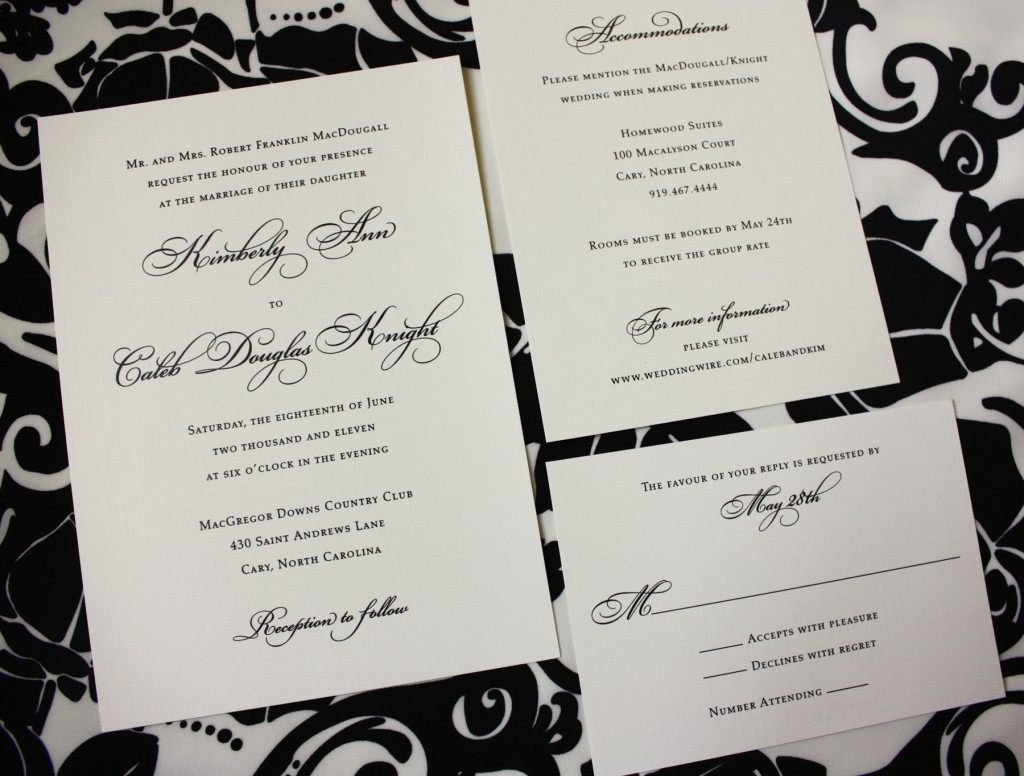 Mr. and Mrs. Robert Franklin MacDougall
request the honour of your presence
at the marriage of their daughter
Kimberly Ann
to
Caleb Douglas Knight
Saturday, the eighteenth of June
two thousand and eleven
at six o'clock in the evening
MacGregor Downs Country Club
430 Saint Andrews Lane
Cary, North Carolina
Reception to follow
Accommodations
Please mention the MacDougall/Knight
wedding when making reservations
Homewood Suites
100 Macalyson Court
Cary, North Carolina
919.467.4444
Rooms must be booked by May 24th
to receive the group rate
For more information
please visit
www.weddingwire.com/calebandkim
The favour of your reply is requested by
May 28th
M
Accepts with pleasure
Declines with regret
Number Attending